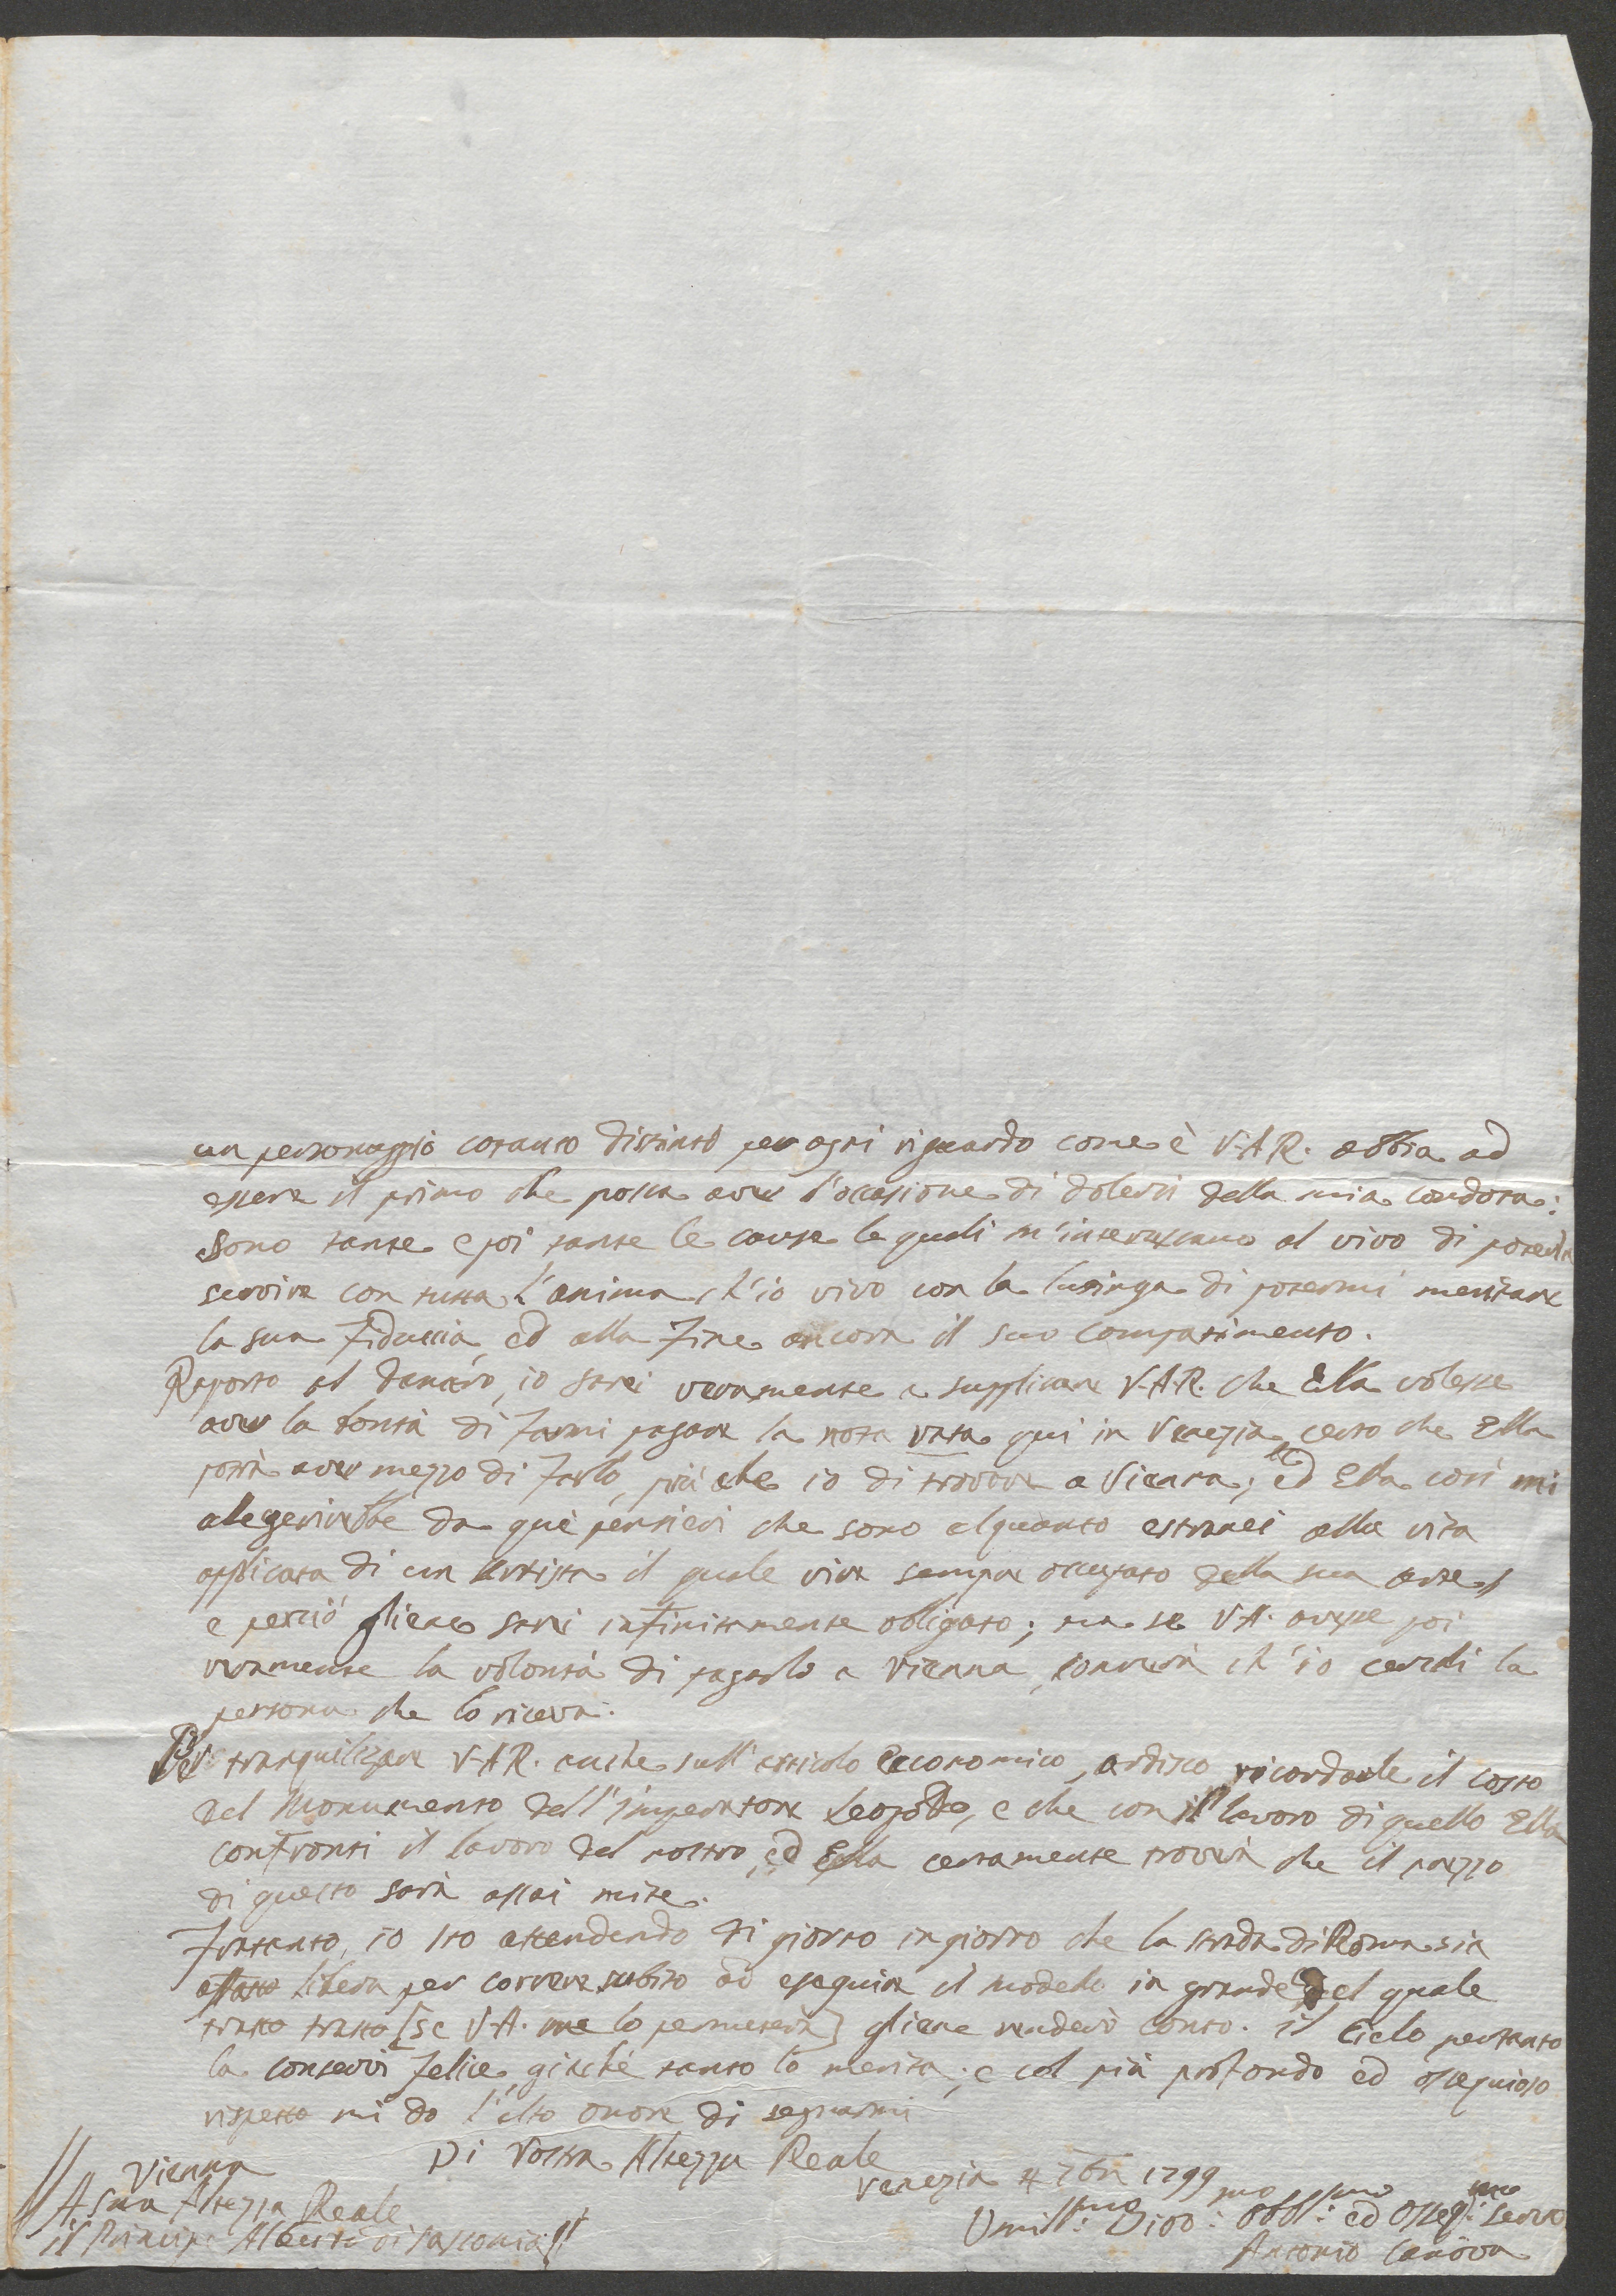 un personaggio cotanto distinto per ogni riguardo come è V.A.R. abbia ad
essere il primo che possa aver l'occasione di dolersi della mia condota:
sono tante e poi tante le cause le quali m'interessano al vivo di poterla
servire con tutta l'anima, ch'io vivo con la lusinga di potermi meritare
la sua fiduccia, ed alla fine ancora il suo compatimento.
Raporto al danaro, io sarei veramente a supplicare V.A.R. che Ella volesse
aver la bontà di farmi pagare la nota rata qui in Venezia, certo che Ella
potrà aver mezzo di farlo, più che io di trovare a Vienna; ed Ella così mi
alegerirebbe da què pensieri che sono alquanto estranei alla vita
applicata di un Artista il quale vive sempre occupato della sua arte,
e perciò gliene sarei infinitamente obligato; ma se V.A. avesse poi
veramente la volontà di pagarlo a Vienna, converrà ch'io cerchi la
persona che lo riceva.
Per tranquilizare V.A.R. anche sull'articolo economico, ardisco ricordarle il costo
del Monumento dell'Imperatore Leopoldo, e che con il lavoro di quello Ella
confronti il lavoro del nostro, ed Ella certamente troverà che il prezzo
di questo sarà assai mite.
Frattanto, io sto attendendo di giorno in giorno che la strada di Roma sia
affatto libera per correre subito ad eseguire il modello in grande, del quale
tratto tratto [se V.A. me lo permeterà] gliene renderò conto. il Cielo pertanto
la conservi felice, giacchè tanto lo merita; e col più profondo ed ossequioso
rispetto mi do l'alto onore di segnarmi
Di Vostra Altezza Reale
Venezia 4 7bre 1799
Vienna
A Sua Altezza Reale
il Principe Alberto di Sassonia
Umill:mo Divo:mo Obbl:mo ed Osseq:mo Servo
Antonio Canova